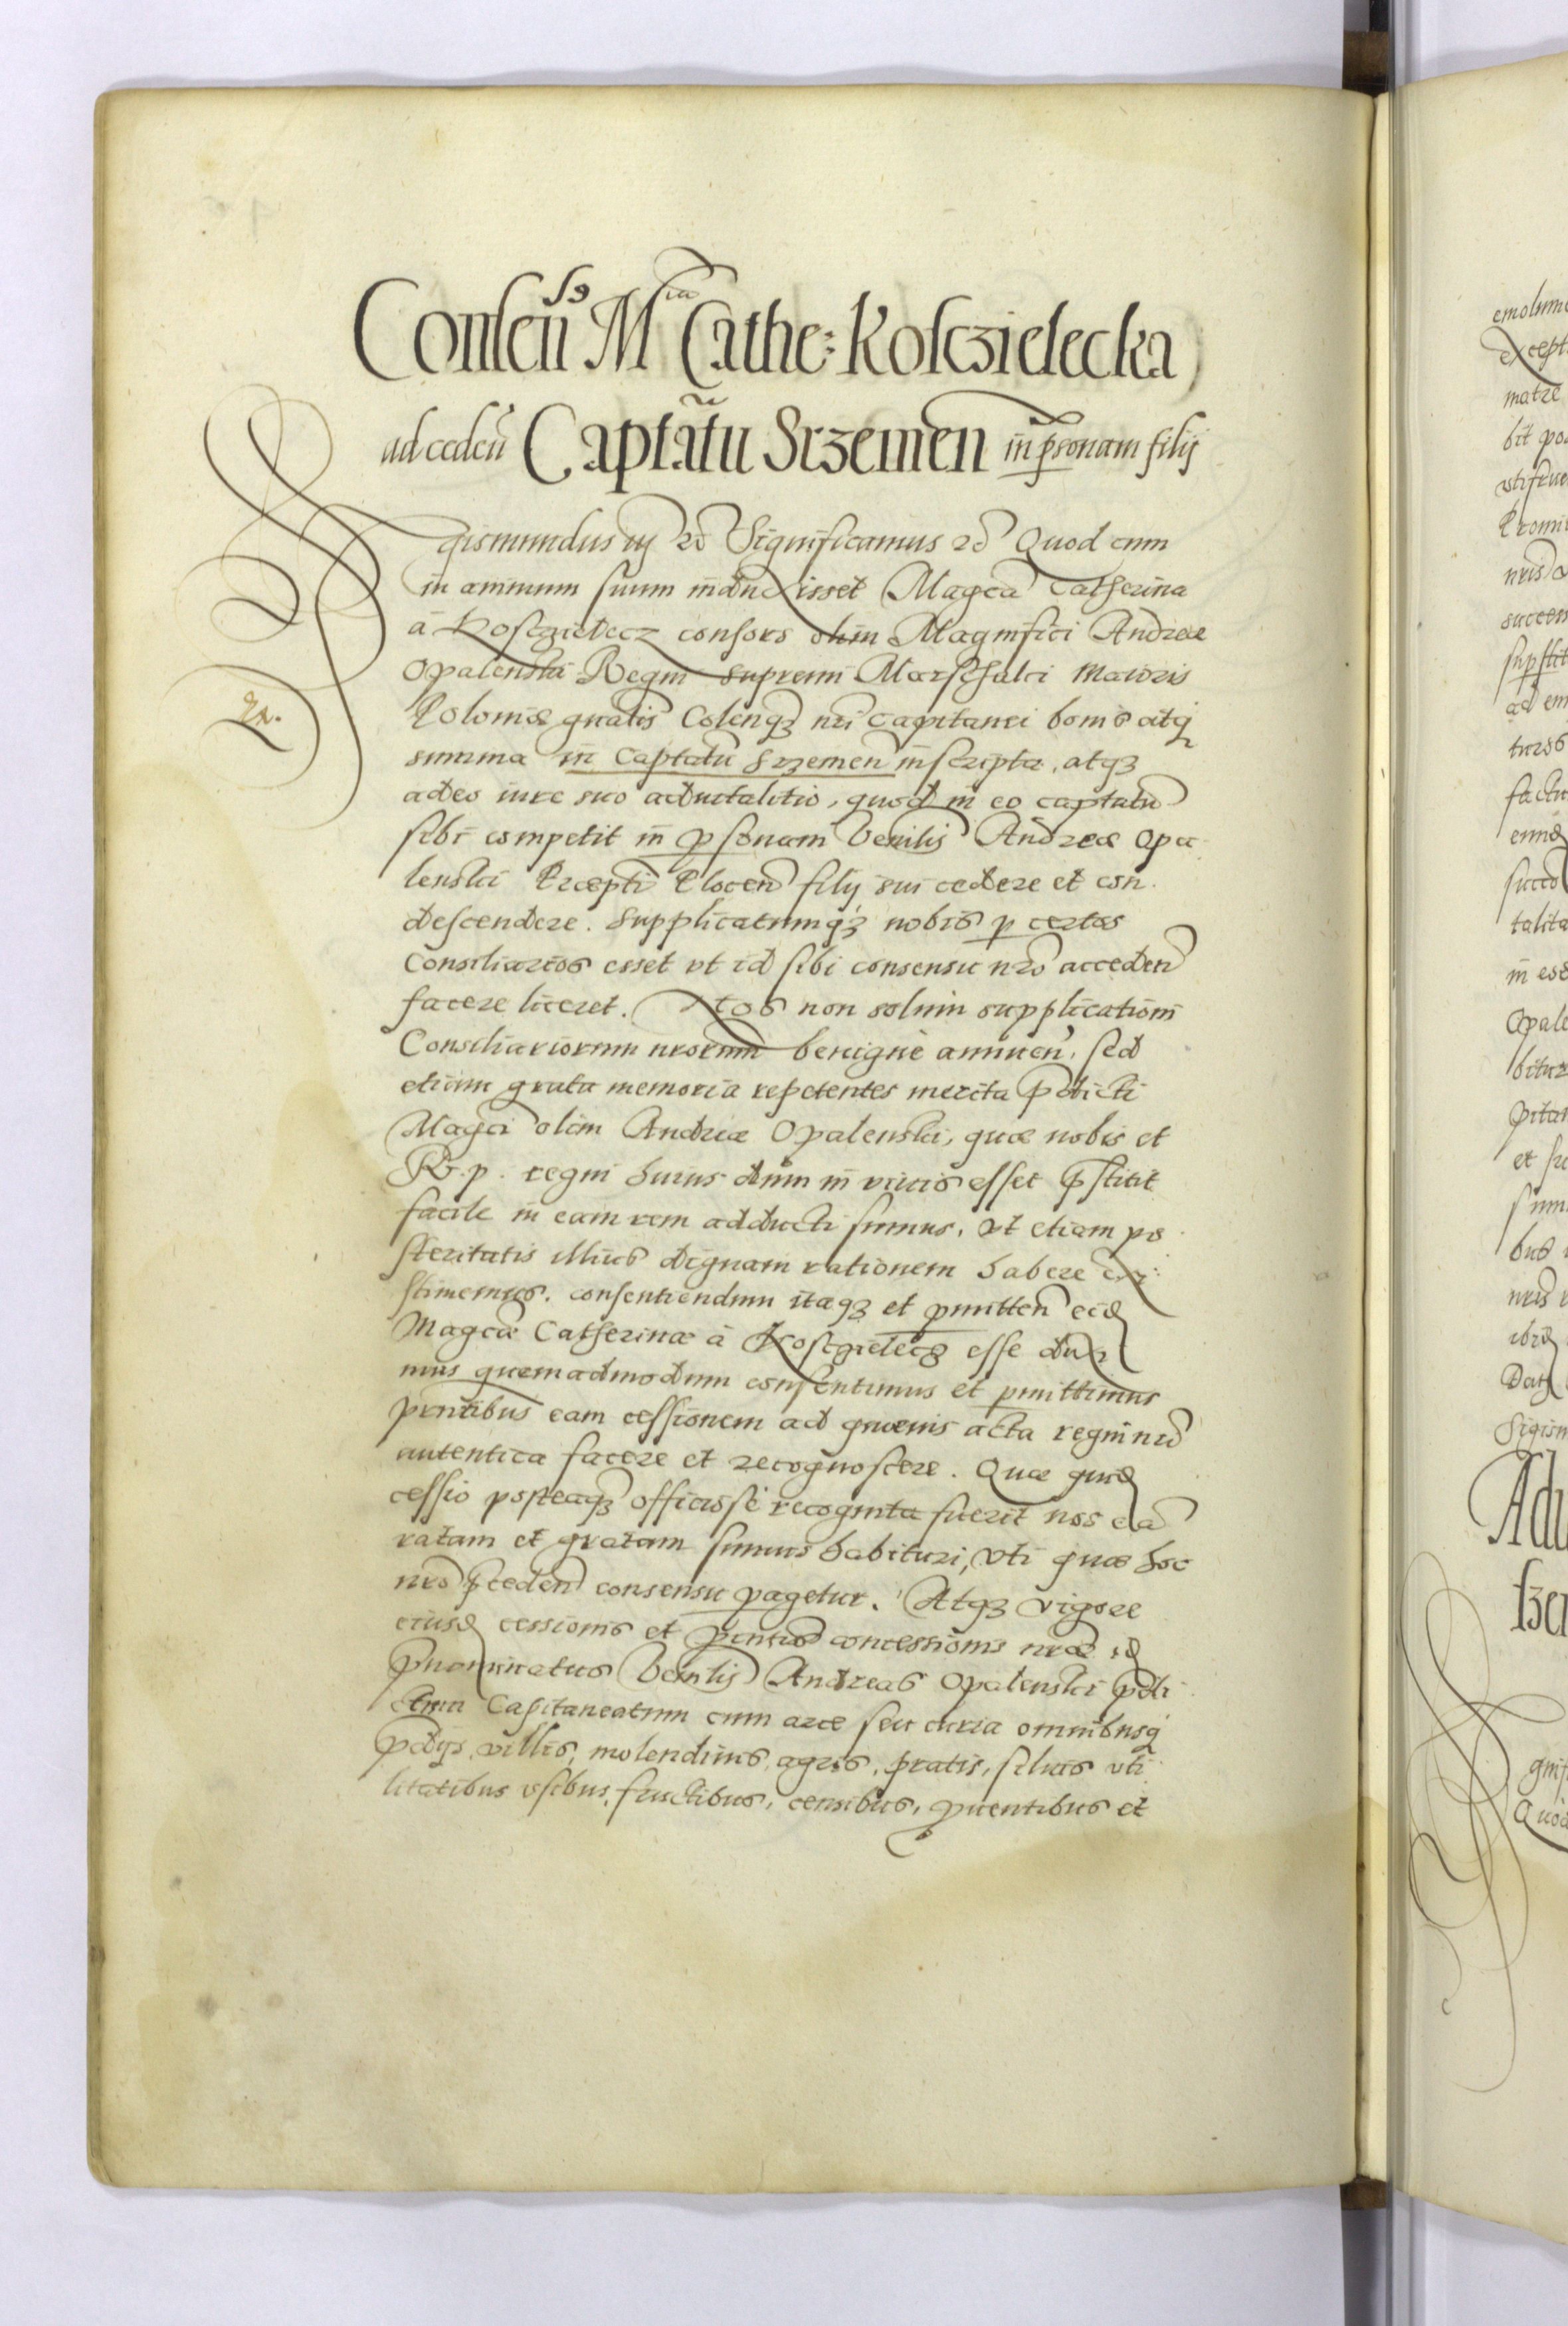 Consensꝰ M^cia Cathe: Koſczielecka
ad cedeñ Captatũ Srzemeñ in p̱sonam filij
Sigismundus iij ꝛc̃ Significamus ꝛc̃ Quod cum
in animum suum induxisset Magca Catherina
à Kosczielecz consors olim Magnifici Andreae
Opalenski Regni supremi Marschalci Maioris
Poloniæ gñalis Colenqꝫ nri capitanei bonis atqꝫ
summa in Captatũ Srzemeñ inscripta, atqꝫ
adeo iure suo aduitalitio, quod in eo captatu
sibi competit in p̱sonam Veñlis Andreæ Opa
lenski Præpti Ploceñ filij sui cedere et con
descendere. Supplicatumqꝫ nobis p̱ certos
Consiliarios esset vt id sibi consensu nr̃o accedeñ
facere liceret. Nos non solum supplicationi
Consiliariorum nrorum benigne annueñ, sed
etiam grata memoria repetentes merita p̃dicti
Magci olim Andreæ Opalenski, quæ nobis et
R. p. regni huius dum in viuis esset p̃stitit
facile in eam rem adducti sumus, vt etiam po
steritatis illius dignam rationem habere exi
stimemus. consentiendum itaqꝫ et p̱mitteñ eid
Magcæ Catherinæ à Kosczielecz esse duxi
mus quemadmodum consentimus et p̱mittimus
pr̃ntibus eam cessionem ad quæuis acta regni nr̃i
autentica facere et recognoscere. Quæ quid
cessio posteaqꝫ officiose recognita fuerit nos eã
ratam et gratam sumus habituri, vti quæ hoc
nr̃o p̃cedeñ consensu p̱agetur. Atqꝫ vigore
eiusd cessionis et p̃ntis concessionis nræ id
p̃nominatus Veñlis Andreas Opalenski p̃di
ctum Capitaneatum cum arce seu curia omnibusqꝫ
p̃dijs, villis, molendinis, agris, pratis, siluis vti
litatibus vsibus, fructibus, censibus, ꝓuentibus et
emolume
except
matre
bit po
vtifrue
Promi
nris
succes
sup̱stit
ad em
turos
factu
succo
talita
in eod
Opale
bitur
pitan
et fu
summ
bus
nris
Dat
Sigism
Adu
gnif
Quod